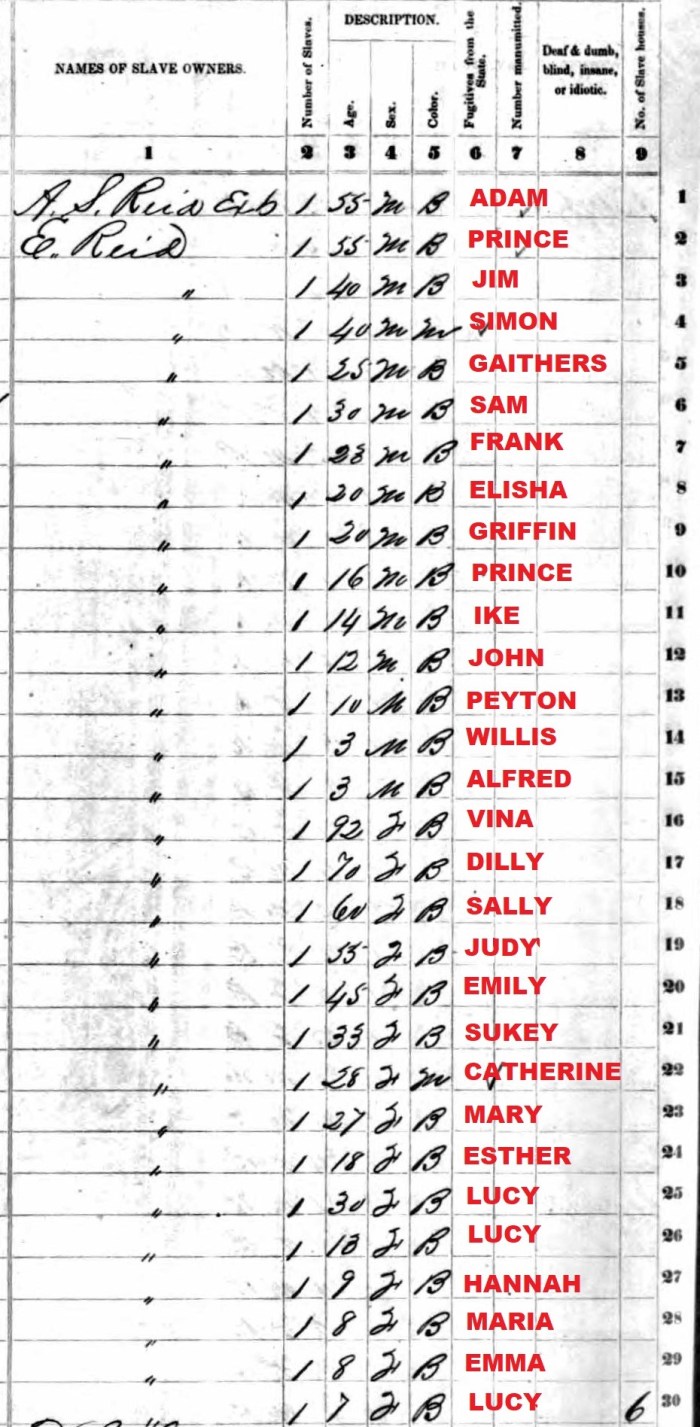 NAMES OF SLAVE OWNERS. Number of Slaves. DESCRIPTION. Age. Sex. Color. Fugitives from the State. Number manumitted. Deaf & dumb, blind, insane, or idiotic. No. of Slave houses.
1 2 3 4 5 6 7 8 9
A. S. Reid Exb 1 55 M B ADAM 1
E. Reid 1 55 M B PRINCE 2
" 1 40 M B JIM 3
" 1 40 M M SIMON 4
" 1 25 M B GAITHERS 5
" 1 30 M B SAM 6
" 1 23 M B FRANK 7
" 1 20 M B ELISHA 8
" 1 20 M B GRIFFIN 9
" 1 16 M B PRINCE 10
" 1 14 M B IKE 11
" 1 12 M B JOHN 12
" 1 10 M B PEYTON 13
" 1 3 M B WILLIS 14
" 1 3 M B ALFRED 15
" 1 92 F B VINA 16
" 1 70 F B DILLY 17
" 1 60 F B SALLY 18
" 1 55 F B JUDY 19
" 1 45 F B EMILY 20
" 1 35 F B SUKEY 21
" 1 28 F M CATHERINE 22
" 1 27 F B MARY 23
" 1 18 F B ESTHER 24
" 1 30 F B LUCY 25
" 1 13 F B LUCY 26
" 1 9 F B HANNAH 27
" 1 8 F B MARIA 28
" 1 8 F B EMMA 29
" 1 7 F B LUCY 6 30